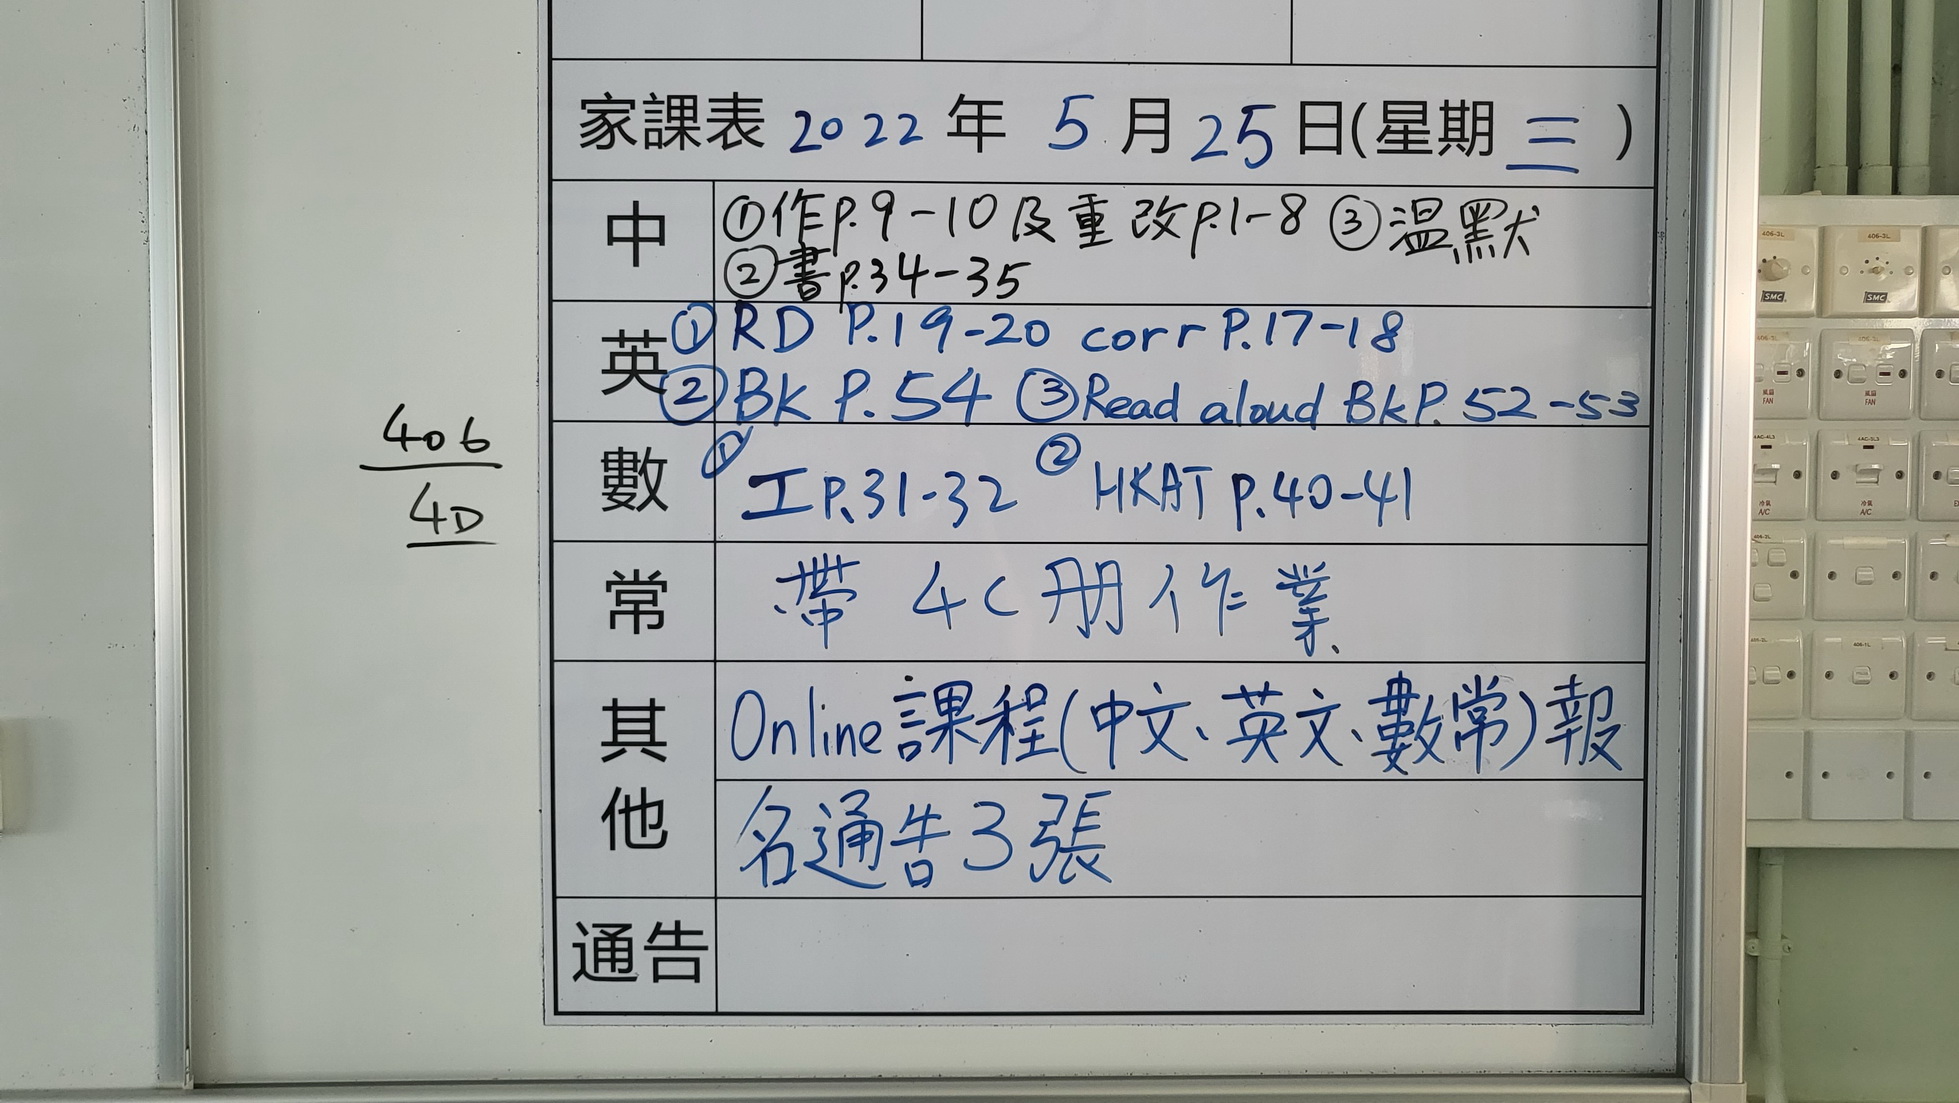 家課表 2022 年 5 月 25 日(星期 三 )
中
①作p.9-10及重改p.1-8 ③溫默
②書p.34-35
英
①RD P.19-20 corr P.17-18
②BK P.54 ③Read aloud BKP. 52-53
數
① 工P.31-32 ② HKAT p.40-41
常
帶 4C 册作業
其他
Online課程(中文、英文、數常)報
名通告3張
通告
406
4D
406-3L
406-3L
SMC
SMC
風扇
FAN
風扇
FAN
冷氣
A/C
冷氣
A/C